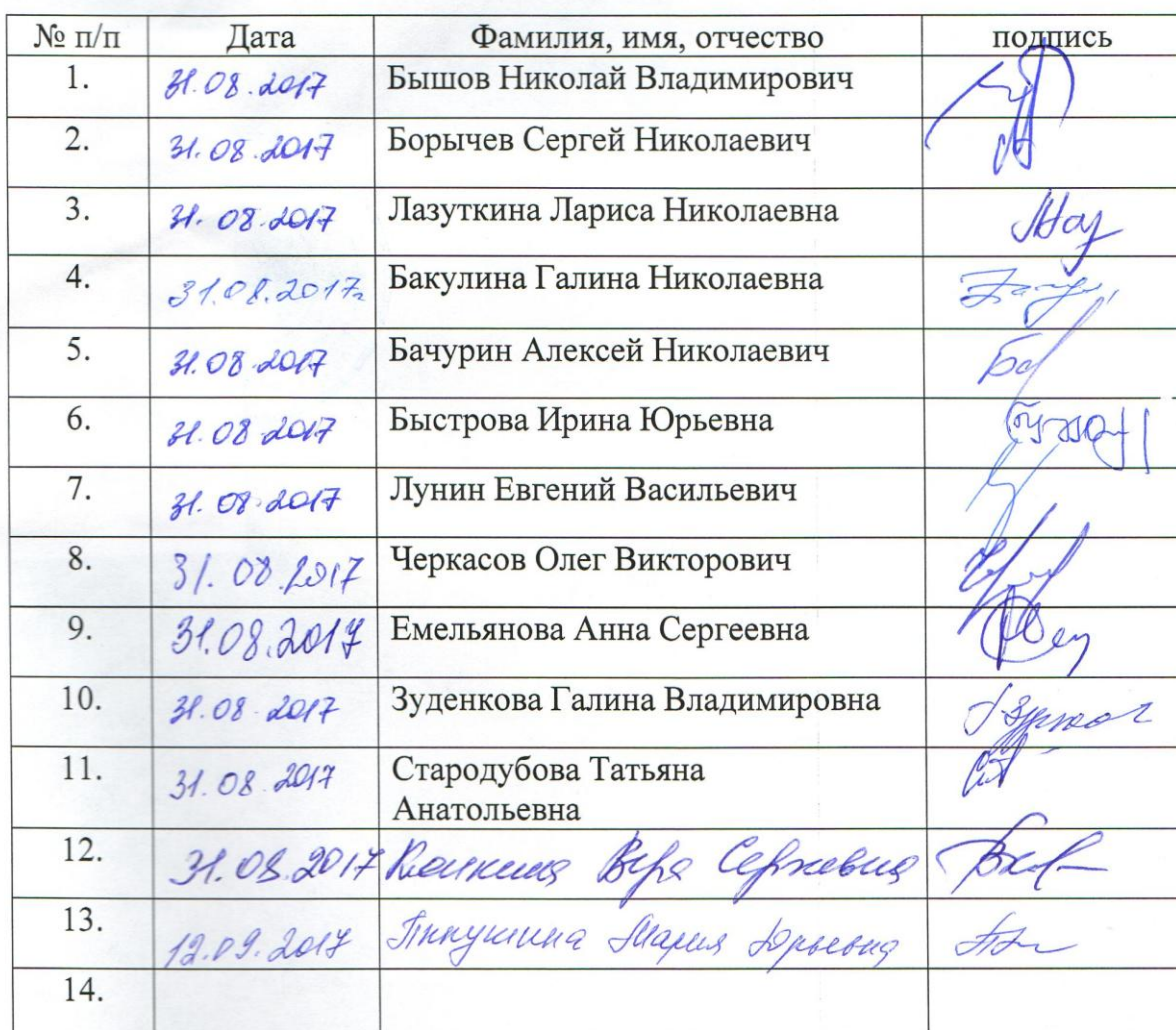 № п/п Дата Фамилия, имя, отчество подпись
1. 31.08.2017 Бышов Николай Владимирович
2. 31.08.2017 Борычев Сергей Николаевич
3. 31.08.2017 Лазуткина Лариса Николаевна
4. 31.08.2017г Бакулина Галина Николаевна
5. 31.08.2017 Бачурин Алексей Николаевич
6. 31.08.2017 Быстрова Ирина Юрьевна
7. 31.08.2017 Лунин Евгений Васильевич
8. 31.08.2017 Черкасов Олег Викторович
9. 31.08.2017 Емельянова Анна Сергеевна
10. 31.08.2017 Зуденкова Галина Владимировна
11. 31.08.2017 Стародубова Татьяна
Анатольевна
12. 31.08.2017 Вера Сергеевна
13. 12.09.2017 Мария Юрьевна
14.